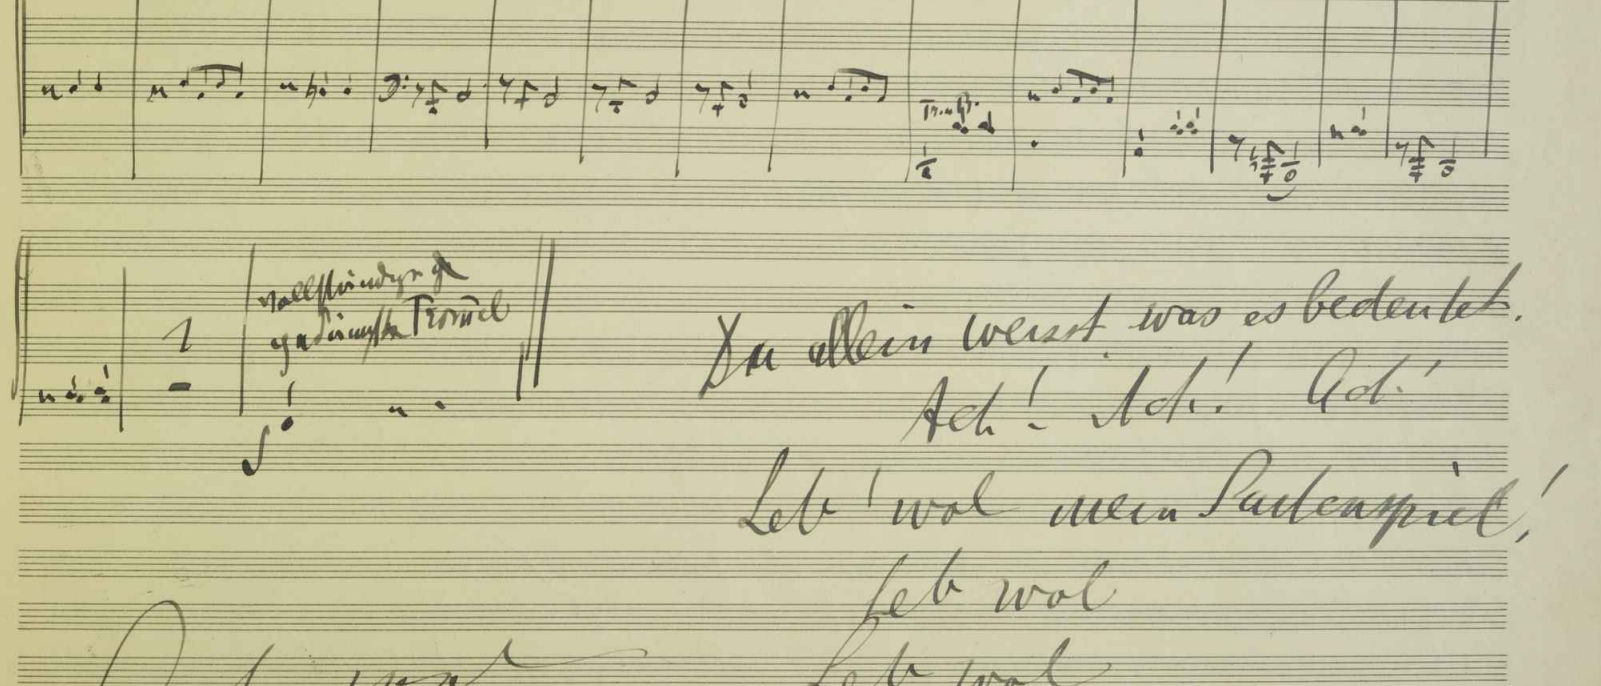 Tromp.
1
vollständig ge
gedämpfte Trom̄el
Du allein weisst was es bedeutet.
Ach! Ach! Ach!
Leb' wol mein Saitenspiel!
Leb wol
Leb wol
Leb wol